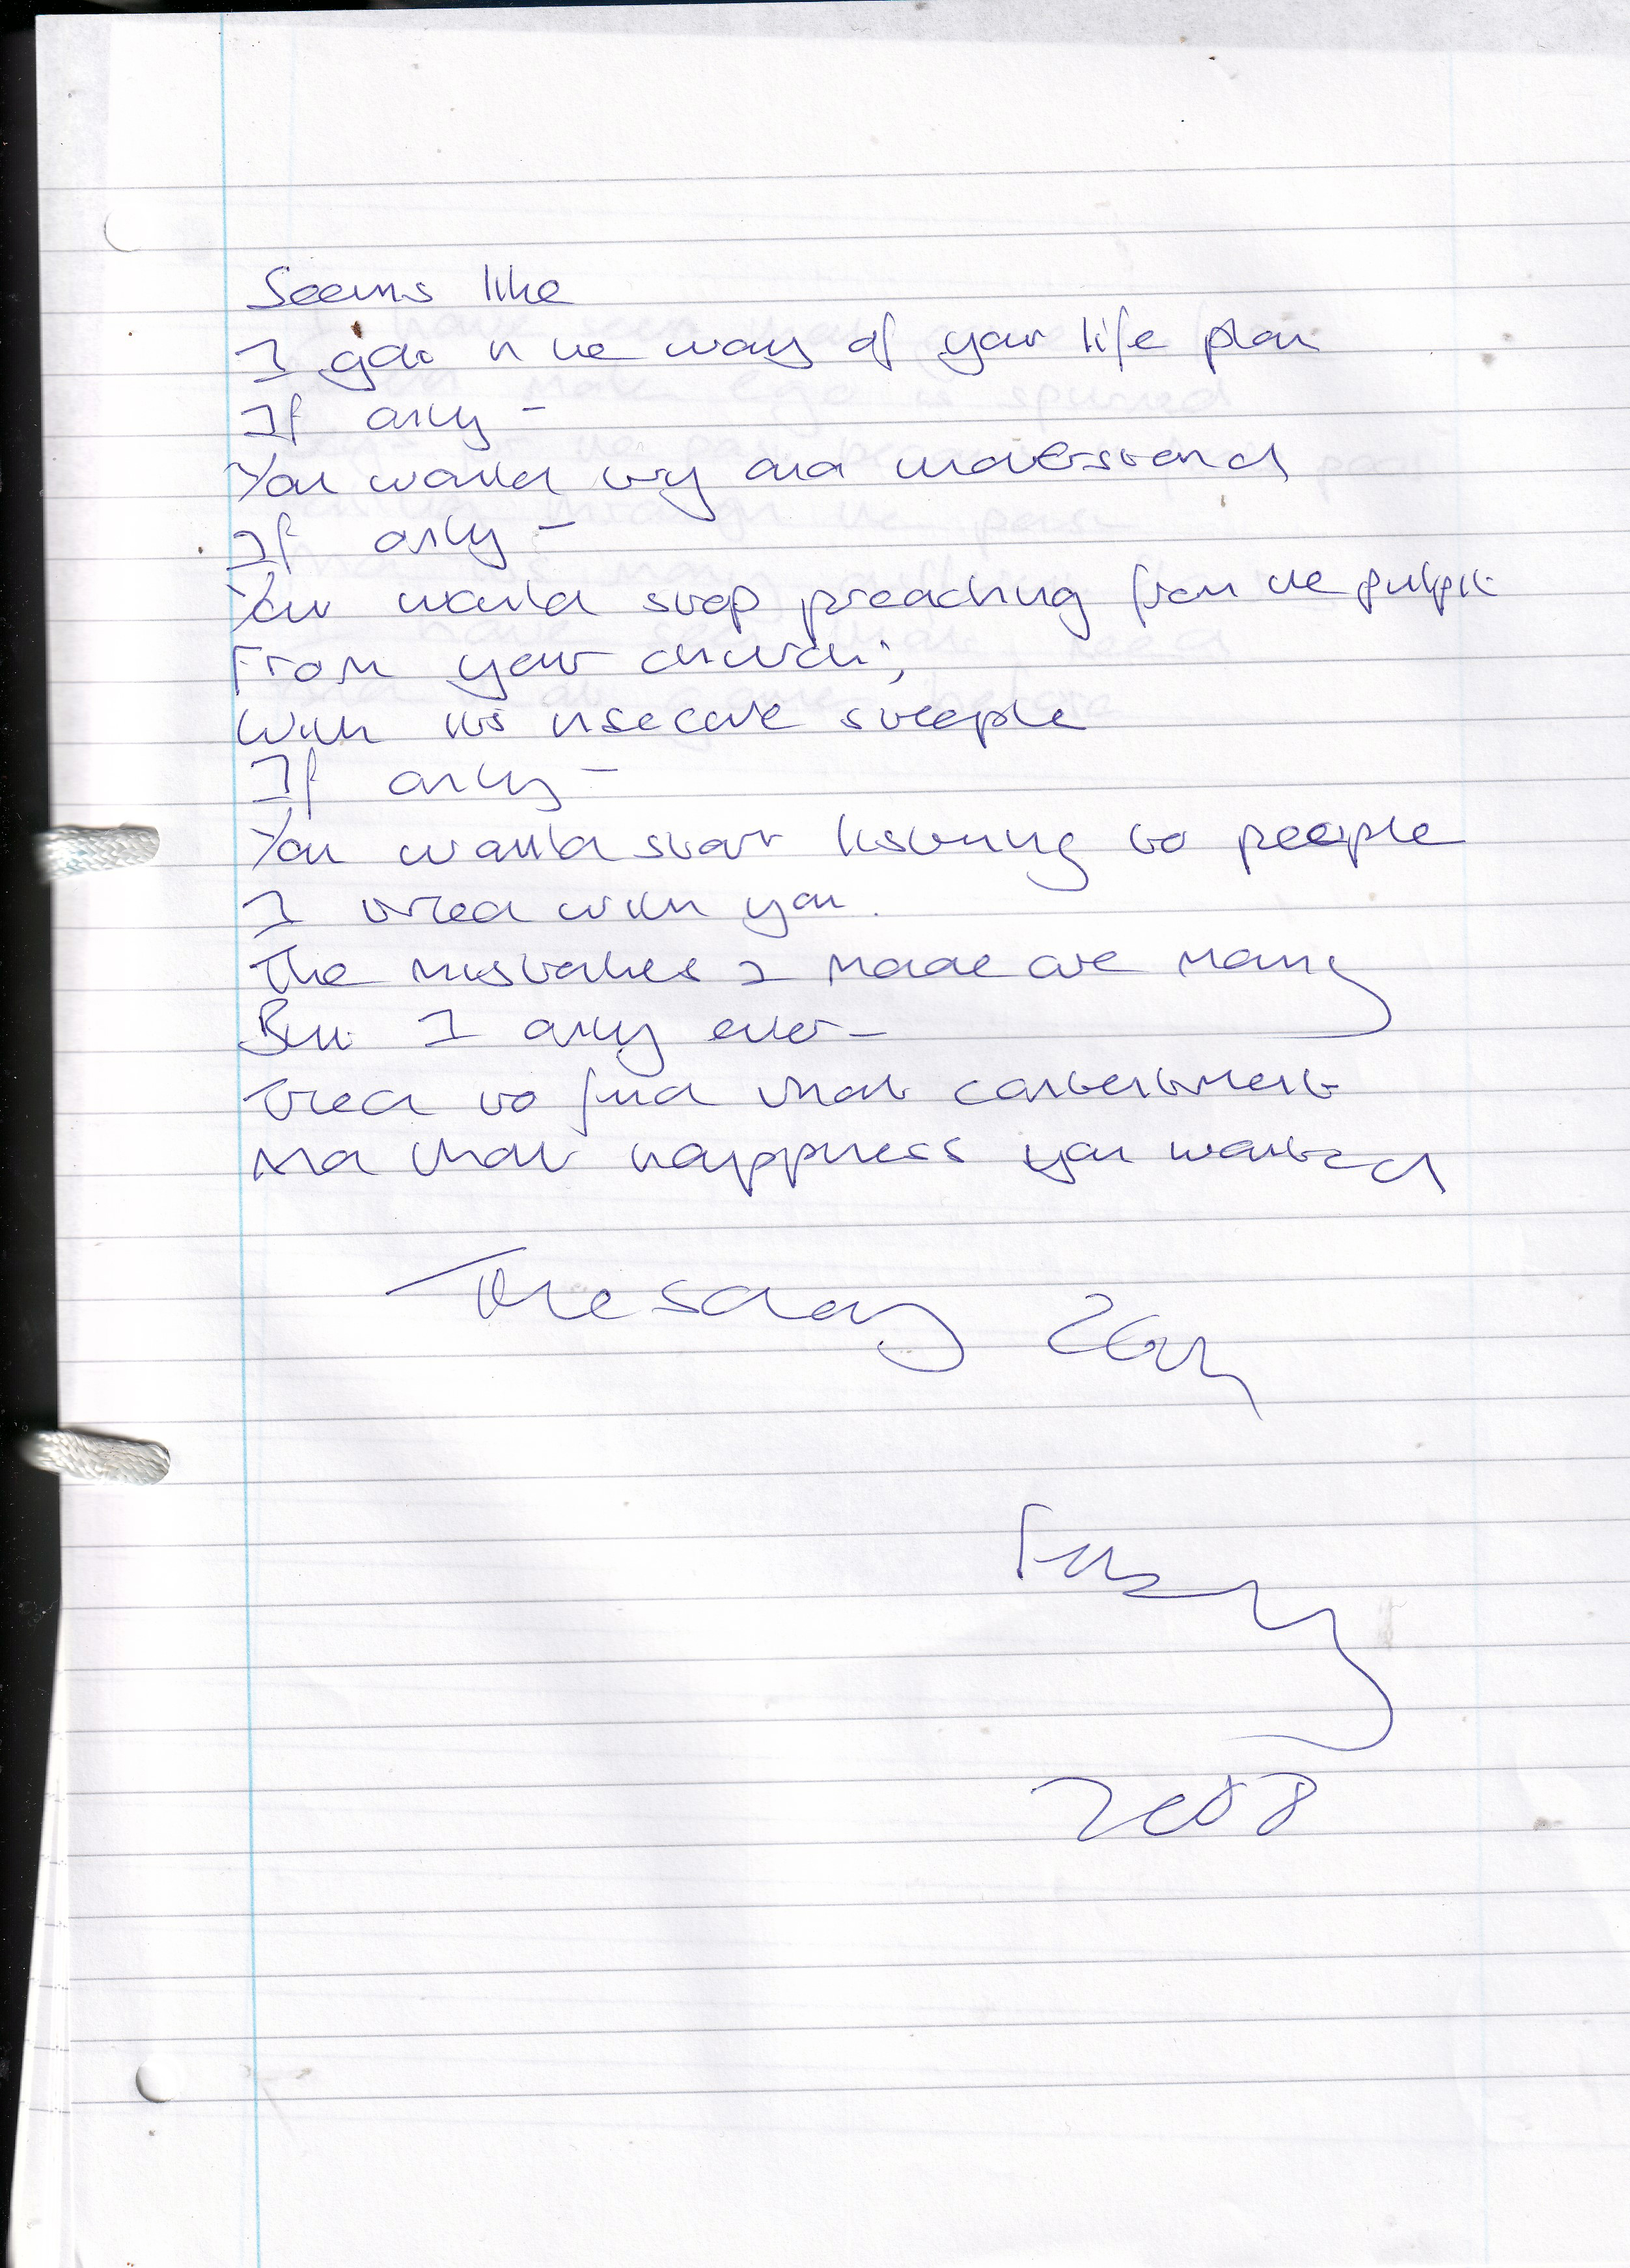 Seems like
I got in the way of your life plan
If only -
You would try and understand
If only -
You would stop preaching from the pulpit
From your church;
With its insecure steeple
If only -
You would start listening to people
I tried with you.
The mistakes I made are many
But I only ever -
Tried to find that contentment
And that happiness you wanted
Tuesday 26th
2008